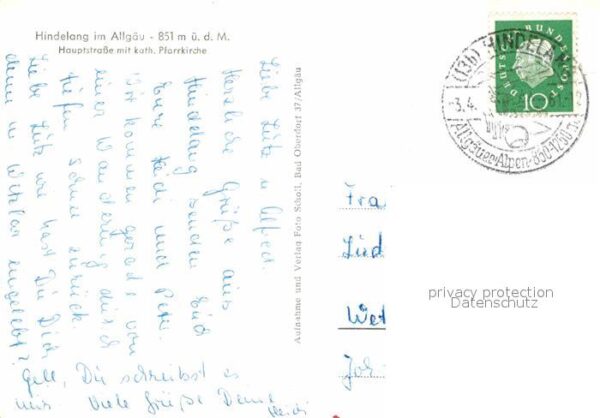 Hindelang im Allgäu - 851 m ü. d. M.
Hauptstraße mit kath. Pfarrkirche
Liebe Lüte u. Alfred.
Herzliche Grüße aus
Hindelang senden Euch
Eure Heidi und Peter.
Wir kommen gerade von
einer Wanderung durch
tiefen Schnee zurück.
Liebe Lüte wie hast Du Dich
denn in Wetzlar eingelebt?
Gell, Du schreibst es
mir. Viele Grüße Deine
Heidi
Aufnahme und Verlag Foto Scholl, Bad Oberdorf 37/Allgäu
DEUTSCHE BUNDESPOST
10
(13b) HINDELA
-3.4. 61
Allgäuer-Alpen-850-1200
Fra
Lüd
Wet
Joh
privacy protection
Datenschutz